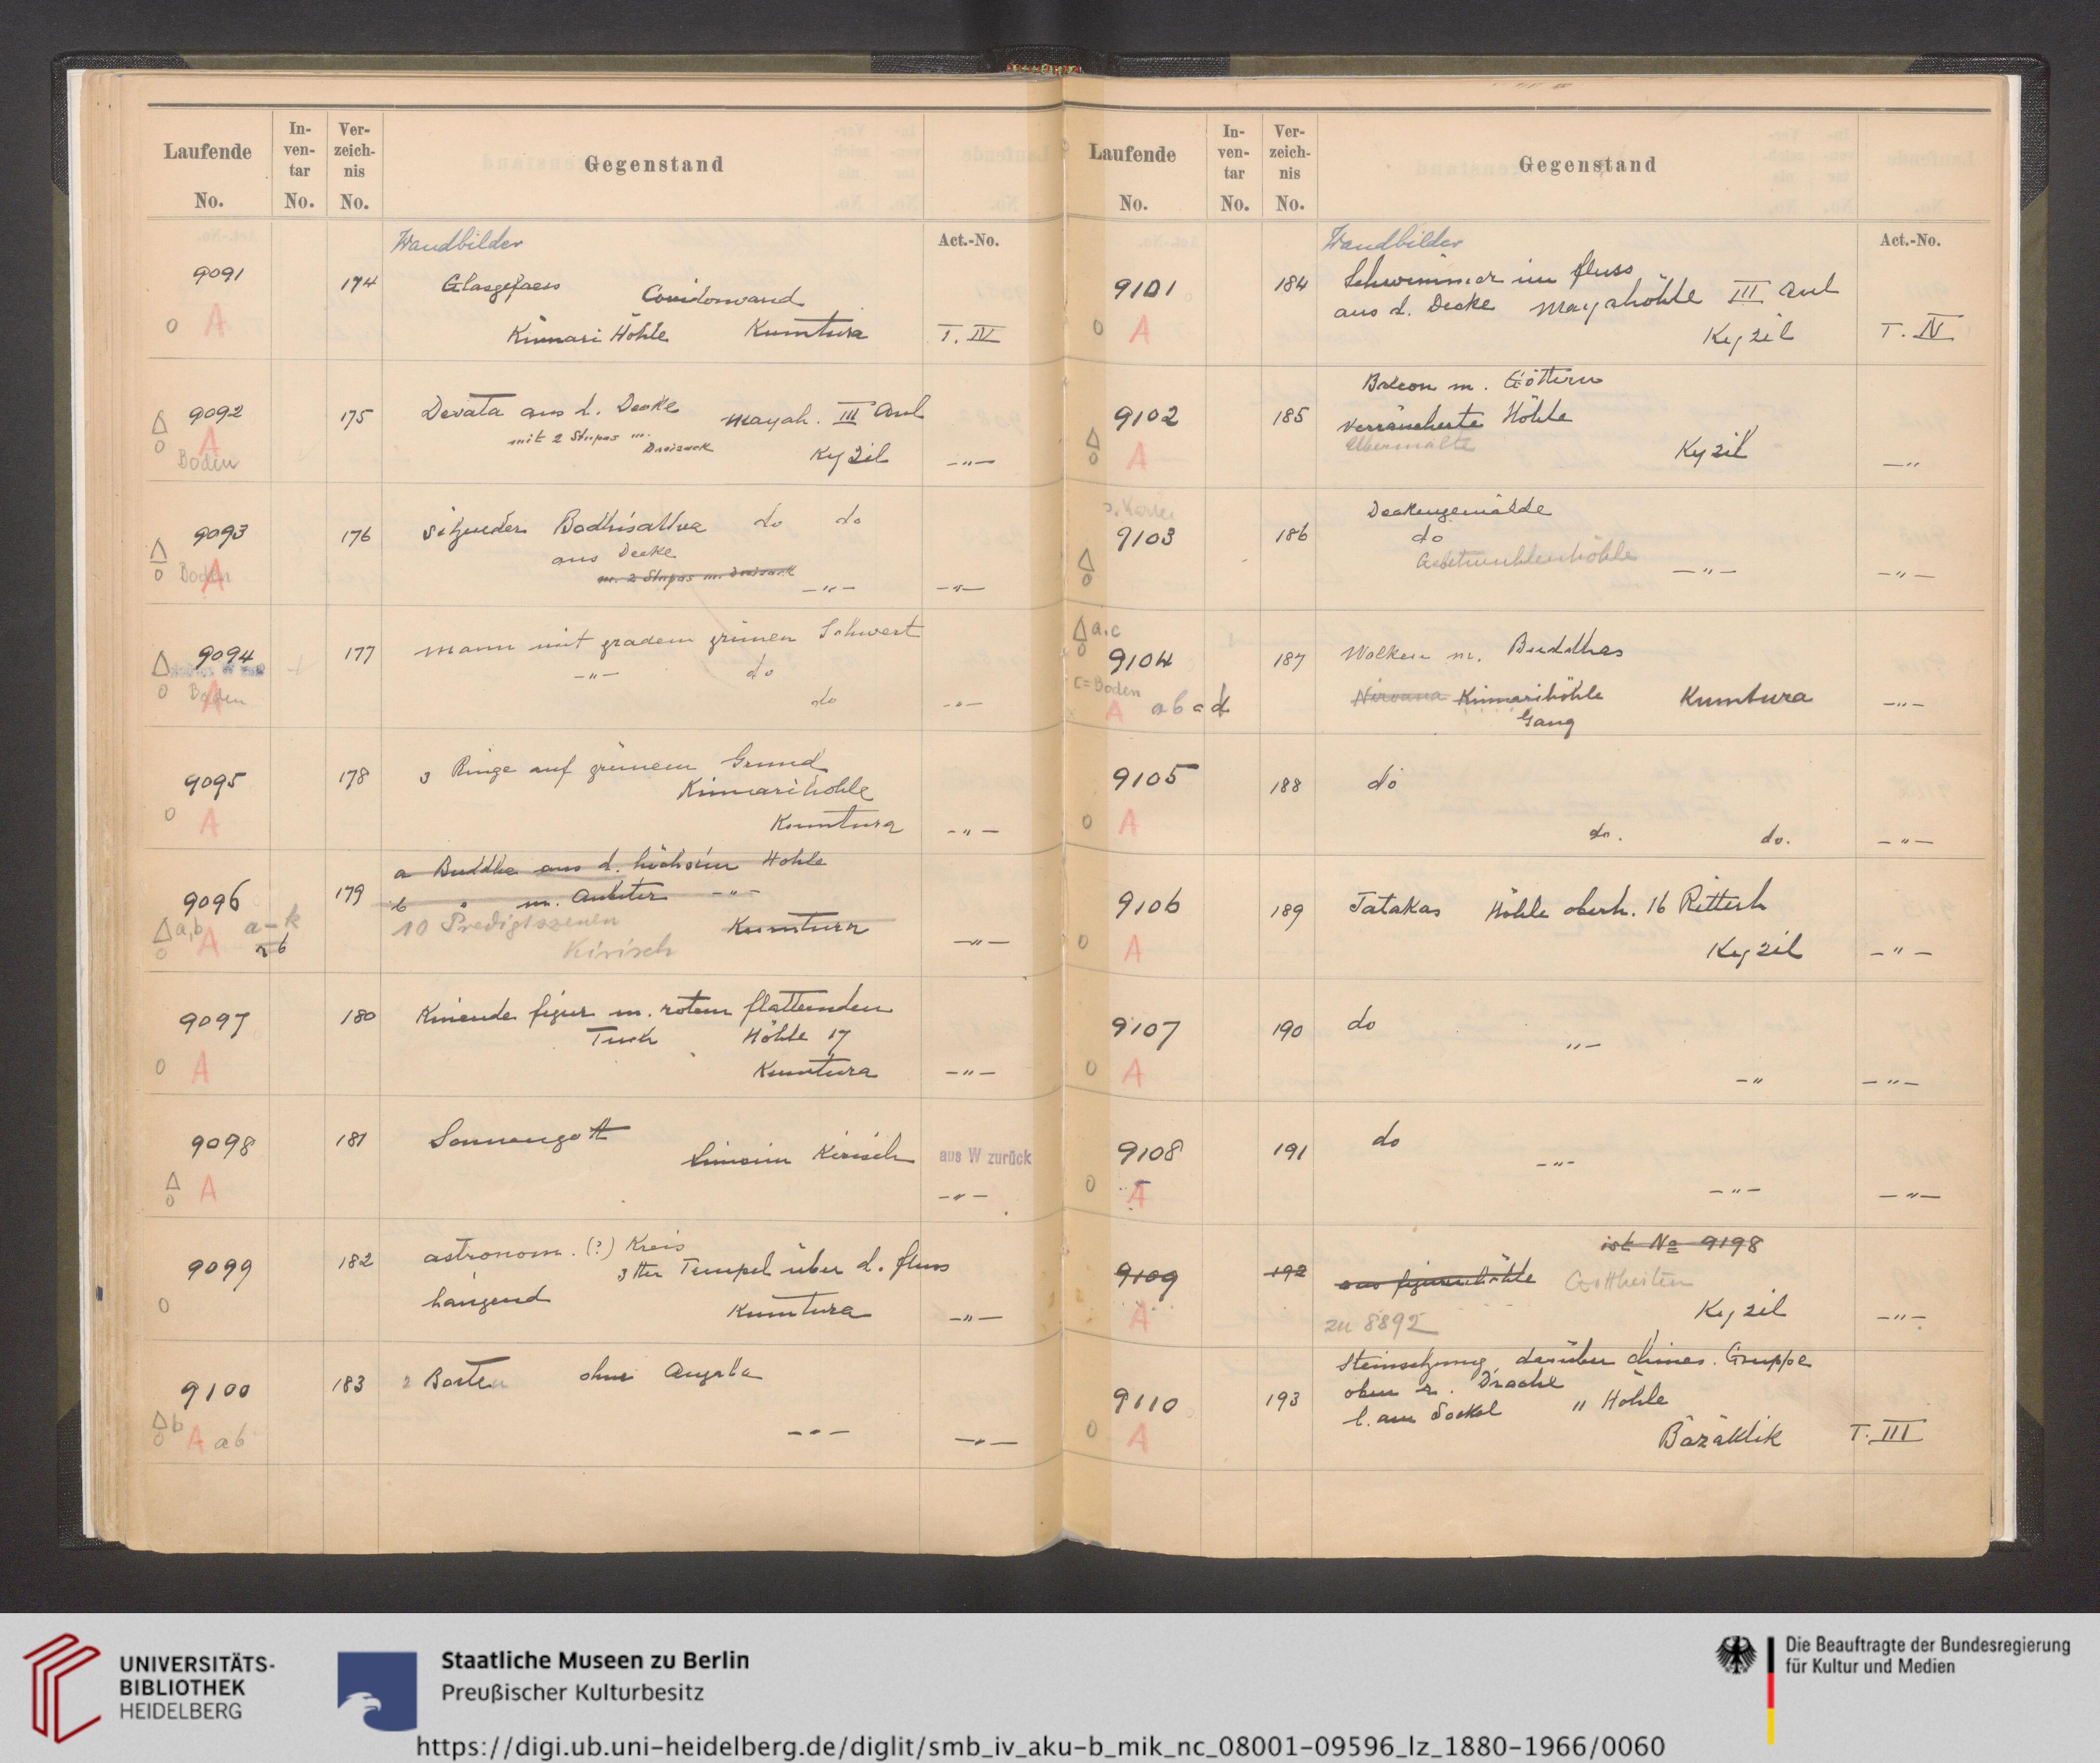 Laufende No.
In-ven-tar No.
Ver-zeich-nis No.
Gegenstand
Wandbilder
Act.-No.
9091
174
Glasgefaess Coridorwand
o A
Kinnari Höhle Kumtura
T. IV
9092
175
Devata aus d. Decke Mayah. III Anl
mit 2 Stupas m. Dreizack
Kyzil
△ o A Boden
—"—
9093
176
Sitzender Bodhisattva do do
aus Decke
m. 2 Stupas m. Dreizack
—"— —"—
△ o Boden A
9094
177
Mann mit gradem grünen Schwert
—"— do
do —"—
△ o Boden A
9095
178
3 Ringe auf grünem Grund
Kinnarihöhle
o A
Kumtura —"—
9096
179
a Buddha aus d. höchsten Höhle
b " m. Anbeter —"—
10 Predigtszenen Kumtura
Kirisch
—"—
△ a, b o A a–k
ab
9097
180
Kniende Figur m. rotem flatternden
Tuch Höhle 17
o A
Kumtura —"—
9098
181
Sonnengott
Simsim Kirisch
aus W zurück
△ o A
—"—
9099
182
astronom. (?) Kreis
3tter Tempel über d. Fluss
hängend
o
Kumtura —"—
9100
183
2 Borten ohne Angabe
△ b o A ab
—"— —"—
Laufende No.
In-ven-tar No.
Ver-zeich-nis No.
Gegenstand
Wandbilder
Act.-No.
9101
184
Schwimmer im Fluss
aus d. Decke Mayahöhle III Anl
o A
Kyzil
T. IV
9102
185
Balcon m. Göttern
verräucherte Höhle
Übermalte
△ o A
Kyzil
—"
9103
186
Deckengemälde
do
—"— —"—
△ o
△ a.c o
9104
187
Wolken m. Buddhas
c = Boden
A a b c d
Nirvana Kinnarihöhle Kumtura
Gang
—"—
9105
188
do
o A
do. do. —"—
9106
189
Jatakas Höhle oberh. 16 Ritterh
o A
Kyzil —"—
9107
190
do
"—
o A
—" —"—
9108
191
do
—"—
o A
—"— —"—
ist No 9198
9109
192
aus Figurenhöhle Gottheiten
zu 8892
A
Kyzil —"—
9110
193
Steinsetzung, darüber chines. Gruppe
oben r. Drache
l. am Sockel " Höhle
o A
Bäzäklik
T. III
UNIVERSITÄTS-
BIBLIOTHEK
HEIDELBERG
Staatliche Museen zu Berlin
Preußischer Kulturbesitz
Die Beauftragte der Bundesregierung
für Kultur und Medien
https://digi.ub.uni-heidelberg.de/diglit/smb_iv_aku-b_mik_nc_08001-09596_lz_1880-1966/0060